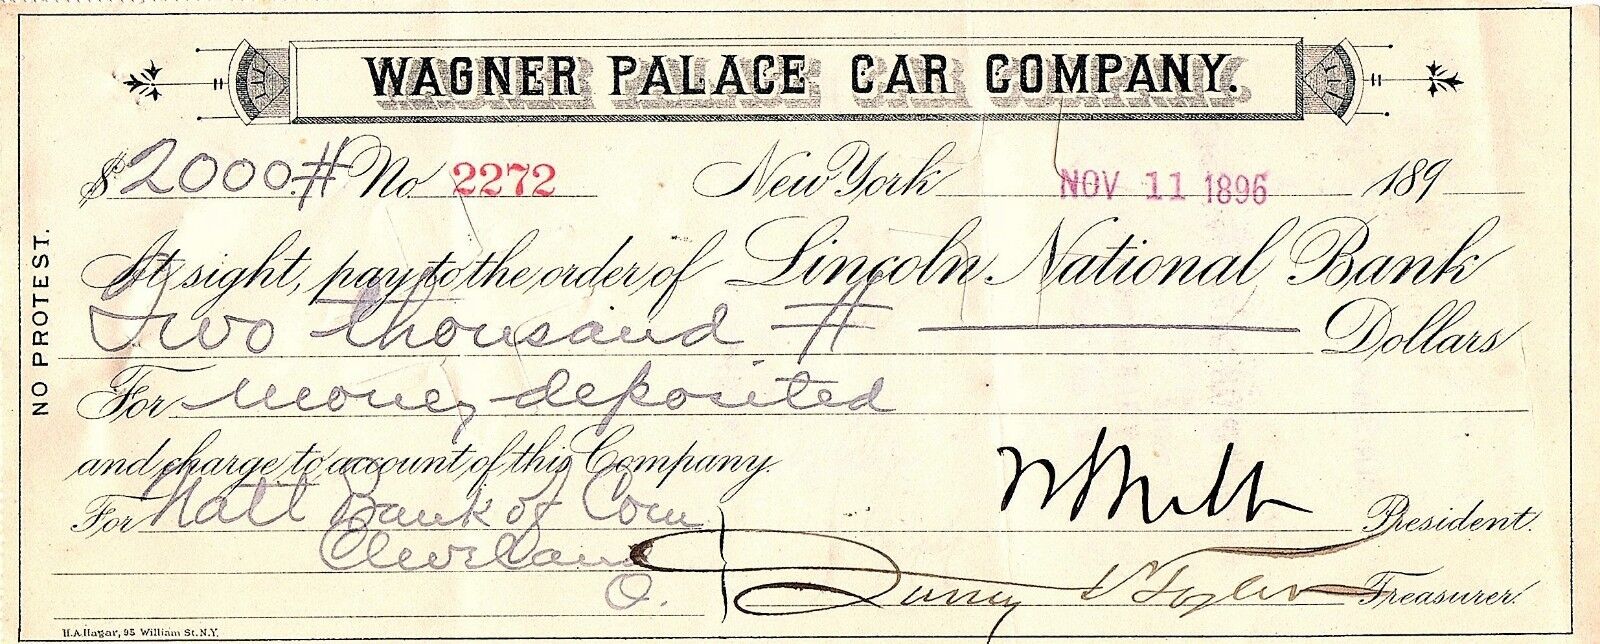 WAGNER PALACE CAR COMPANY.
$2000.# No. 2272 New York NOV 11 1896 189
At sight, pay to the order of Lincoln National Bank
Two thousand # Dollars
For money deposited
and charge to account of this Company.
For Natl Bank of Com
Cleveland
O.
President.
Treasurer.
NO PROTEST.
H.A. Hagar, 95 William St. N.Y.